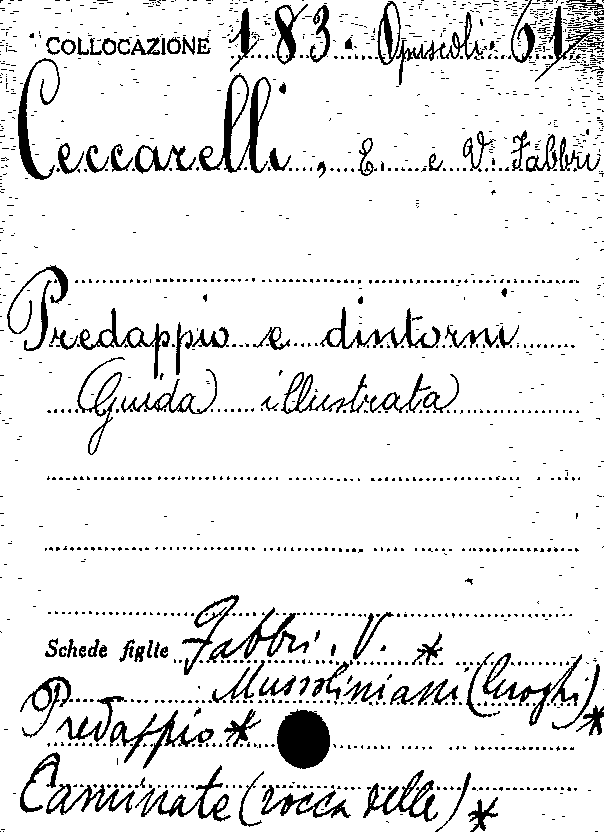 COLLOCAZIONE 183. Opuscoli. 61
Ceccarelli, E. e V. Fabbri
Predappio e dintorni
(Guida) illustrata
Schede figlie Fabbri, V. *
Mussoliniani (luoghi) *
Predappio *
Caminate (rocca delle) *